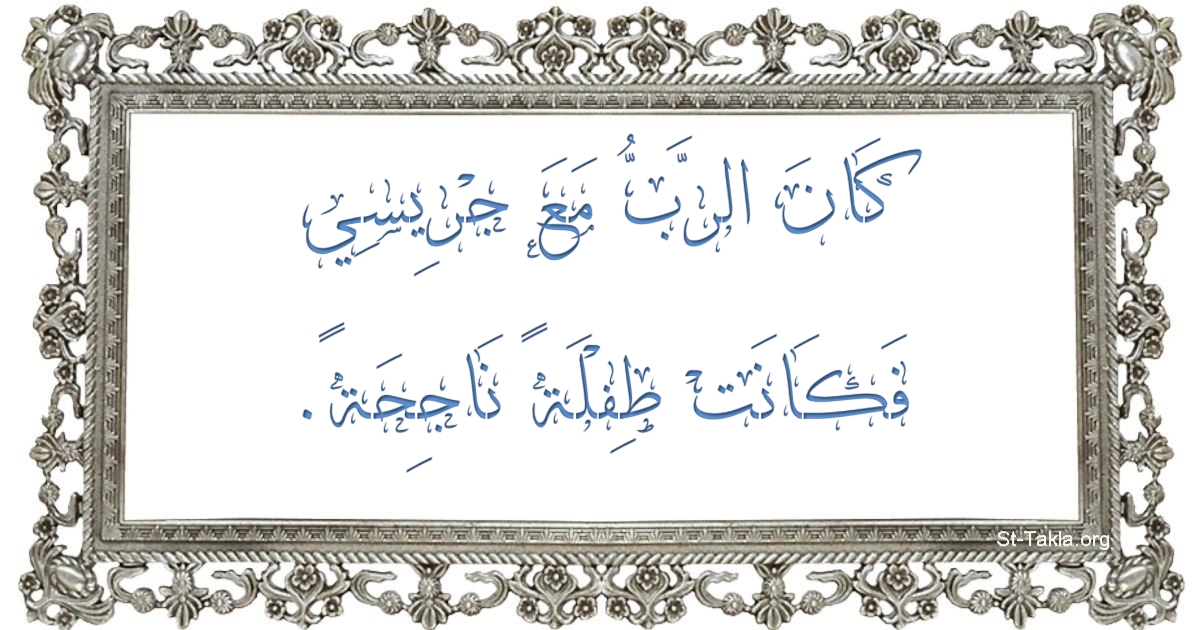 كَانَ الرَّبُّ مَعَ جْرِيسِي
فَكَانَتْ طِفْلَةً نَاجِحَةً.
St-Takla.org